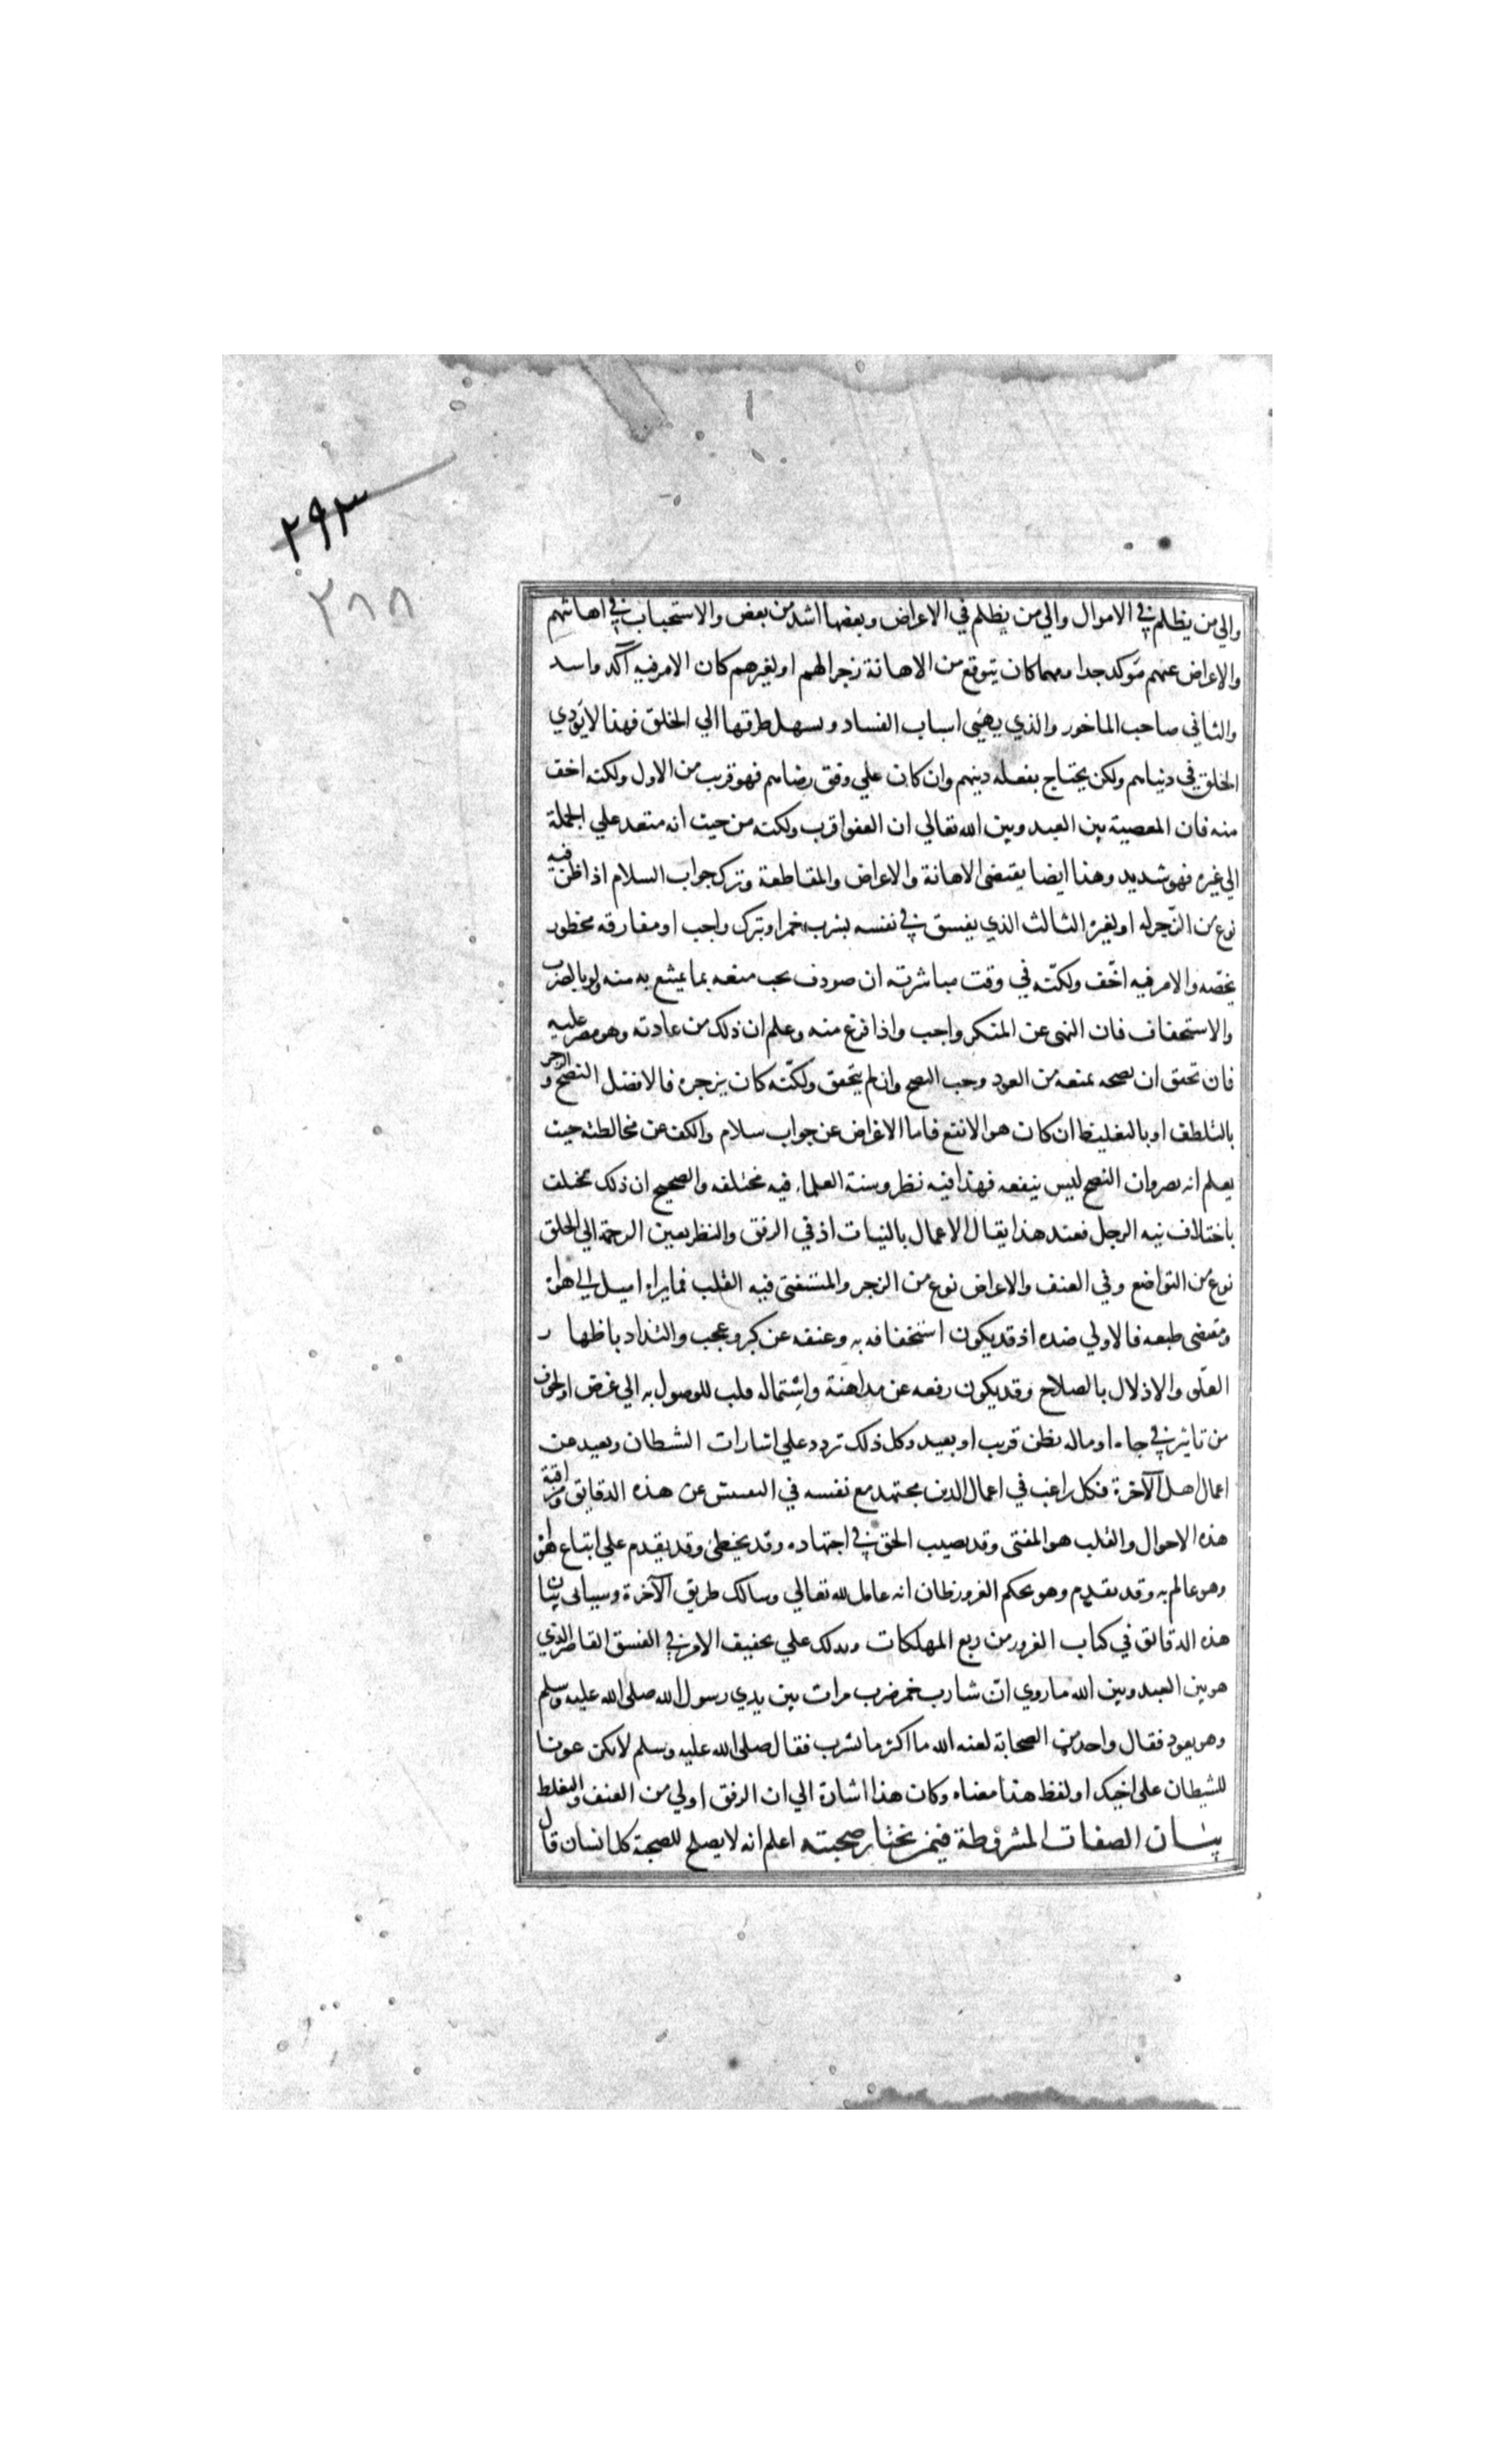 ٢٩٣
٣٨٨
والي من يظلم في الاموال والي من يظلم في الاعراض وبعضها اشد من بعض والاستحباب في اهانتهم
والاعراض عنهم متوكد جدا ومهما كان يتوقع من الاهانة زجرا لهم او لغيرهم كان الامر فيه آكد واسد
والثاني صاحب الماخور والذي يهيي اسباب الفساد ويسهل طرقها الي الخلق فهذا لا يوذي
الخلق في دنياهم ولكن يحتاج بفعله دينهم وان كان علي وفق رضاهم فهو قريب من الاول ولكنه اخف
منه فان المعصية بين العبد وبين الله تعالي ان العفو اقرب ولكنه من حيث انه متعد علي الجملة
الي غيره فهو شديد وهذا ايضا يقتضى الاهانة والاعراض والمقاطعة وترك جواب السلام اذا ظن فيه
نوع من الزّجر له او لغيره الثالث الذي يفسق في نفسه بشرب خمر او بترك واجب او مفارقه محظور
يخصّه والامر فيه اخّف ولكنّه في وقت مباشرته ان صودف يجب منعه بما يمتنع به منه ولو بالضرب
والاستخفاف فان النهى عن المنكر واجب واذا فرغ منه وعلم ان ذلك من عادته وهو مصر عليه
فان تحقق ان نصحه يمنعه من العود وجب النصح وان لم يتحقق ولكنّه كان ينزجره فالافضل النصح والزجر
بالتلطف او بالتغليظ ان كان هو الانفع فاما الاعراض عن جواب سلام والكف عن مخالطته حيث
يعلم انه يصر وان النصح ليس ينفعه فهذا فيه نظر وسنة العلماء فيه مختلفه والصحيح ان ذلك يختلف
باختلاف نيه الرجل فعند هذا يقال الاعمال بالنيات اذ في الرفق والنظر بعين الرحمة الي الخلق
نوع من التواضع وفي العنف والاعراض نوع من الزجر والمستفتى فيه القلب فما يراه اميل الي هواه
ومقتضى طبعه فالاولي ضده اذ قد يكون استخفافه به وعنفه عن كبر وعجب والتذاذ باظهار
العلّو والادلال بالصلاح وقد يكون رفعه عن مداهنة واستماله قلب للوصول به الي غرض او لخوف
من تاثير في جاه او ماله بظن قريب او بعيد وكل ذلك تردد علي اشارات الشطان وبعيد عن
اعمال اهل الآخرة فكل راغب في اعمال الدين مجتهد مع نفسه في التفتيش عن هذه الدقايق ومراقبة
هذه الاحوال والقلب هو المفتى وقد يصيب الحق في اجتهاده وقد يخطئ وقد يقدم علي اتباع هواه
وهو عالم به وقد يقدم وهو بحكم الغرور ظان انه عامل لله تعالي وسالك طريق الآخرة وسياتى بيان
هذه الدقائق في كتاب الغرور من ربع المهلكات ويدلك علي تخفيف الامر في الفسق القاصر الذي
هو بين العبد وبين الله ما روي انّ شارب خمر ضرب مرات بين يدي رسول الله صلى الله عليه وسلم
وهو يعود فقال واحد من الصحابة لعنه الله ما اكثر ما يشرب فقال صلى الله عليه وسلم لا تكن عونا
للشيطان على اخيك او لفظ هذا معناه وكان هذا اشارة الي ان الرفق اولي من العنف والتغليظ
بيان الصفات المشروطة فيمن تختار صحبته اعلم انه لا يصلح للصحبة كل انسان قال